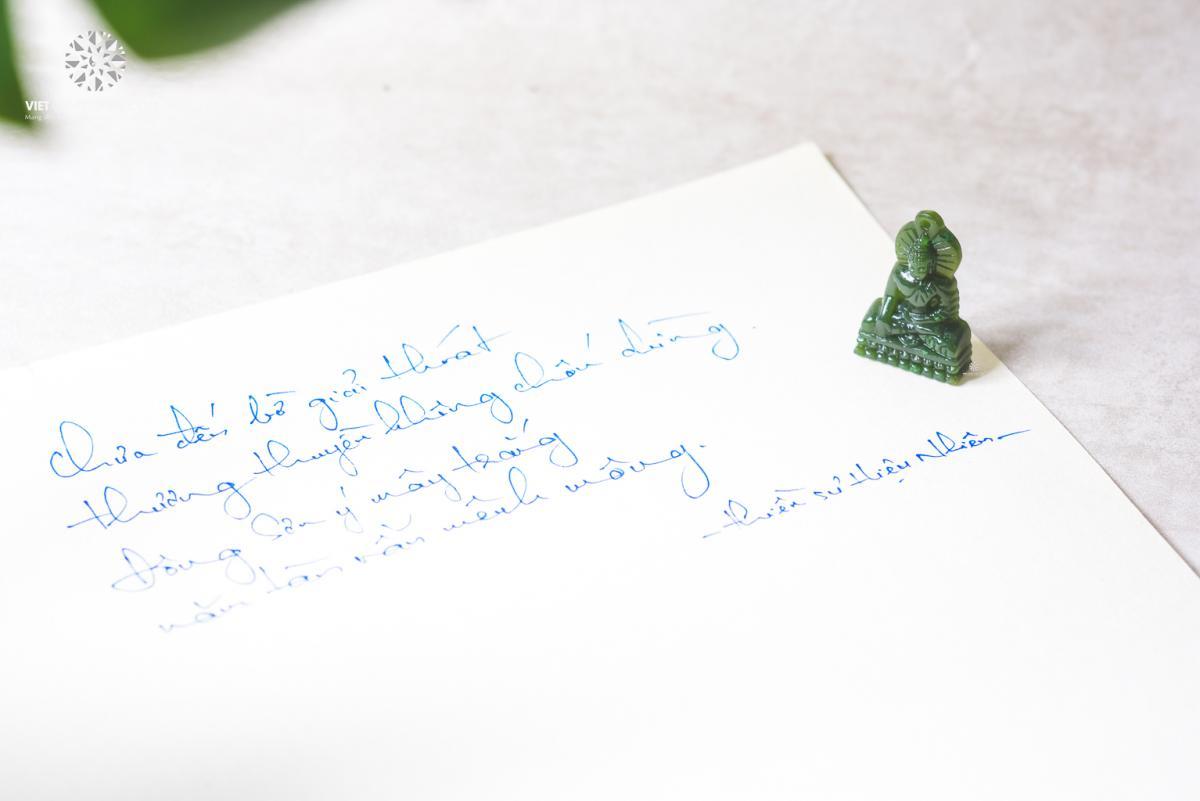 VIET
Mang
Chưa đến bờ giải thoát
thương thuyền không chốn dừng.
Đông Sơn ý mây trắng
mênh mông.
- thiền sư thiệu Nhiên -